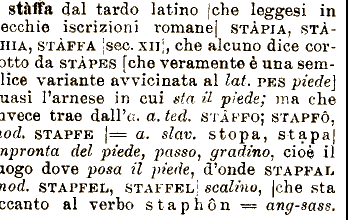 stàffa dal tardo latino [che leggesi in
ecchie iscrizioni romane] STÀPIA, STÀ-
HIA, STÀFFA [sec. XII], che alcuno dice cor-
otto da STÀPES [che veramente è una sem-
lice variante avvicinata al lat. PES piede]
uasi l'arnese in cui sta il piede; ma che
nvece trae dall'a. a. ted. STÀFFO; STAPFÔ,
nod. STAPFE [= a. slav. stopa, stąpa]
npronta del piede, passo, gradino, cioè il
uogo dove posa il piede, d'onde STAPFAL
nod. STAPFEL, STAFFEL] scalino, [che sta
ccanto al verbo staphôn = ang-sass.